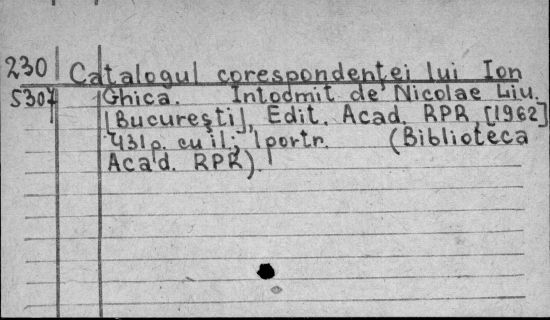 230 Catalogul corespondenței lui Ion
5307 Ghica. Intodmit de Nicolae Liu.
[București], Edit. Acad. RPR [1962]
431p. cu il.; 1portr. (Biblioteca
Acad. RPR).